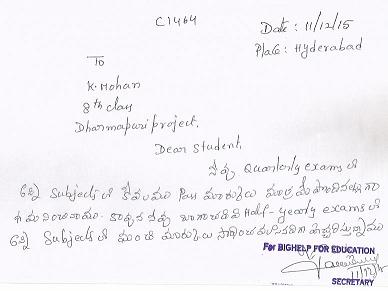 C1464
Date : 11/12/15
Place : Hyderabad
To
K. Mohan
8th class
Dharmapuri project.
Dear Student,
నీవు Quarterly exams లో
అన్ని Subjects లో కేవలము Pass మార్కులు మాత్రమే
గమనించినాము. కావున నీవు బాగా చదివి Half-yearly exams లో
అన్ని Subjects లో మంచి మార్కులు
For BIGHELP FOR EDUCATION
11/12/15
SECRETARY